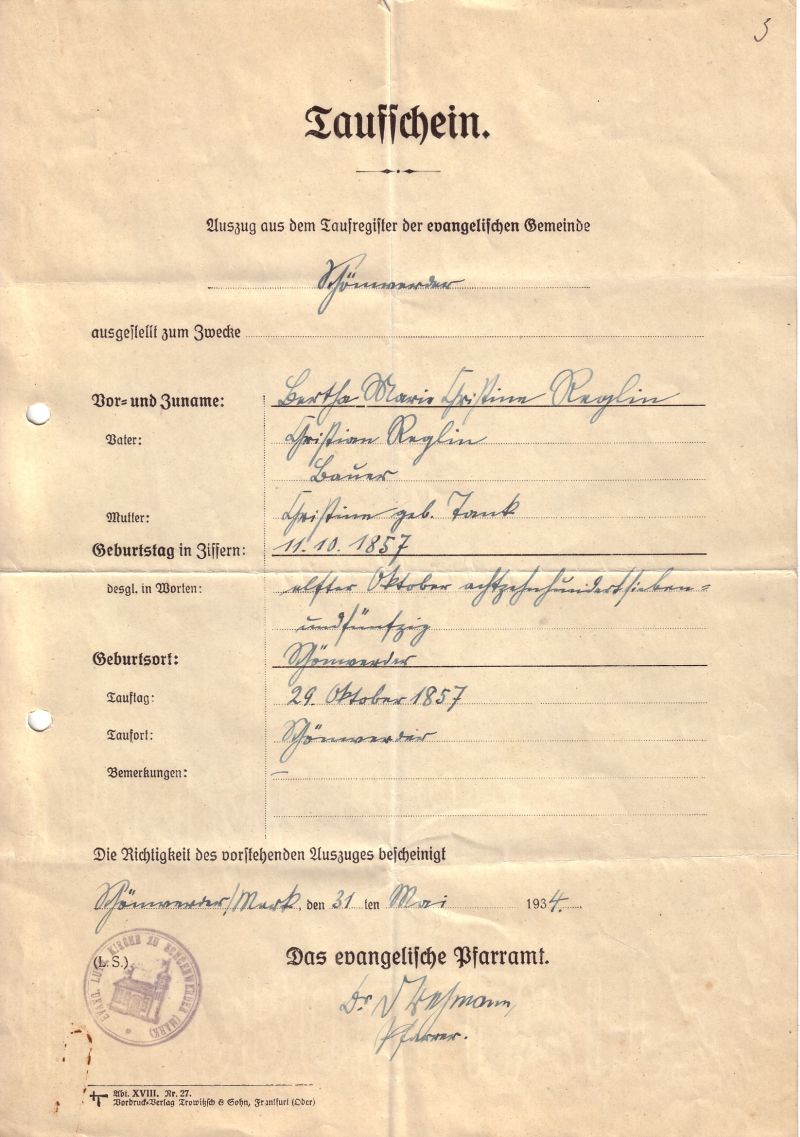 5
Taufschein.
Auszug aus dem Taufregister der evangelischen Gemeinde
Schönwerder
ausgestellt zum Zwecke
Vor- und Zuname: Bertha Marie Christine Reglin
Vater: Christian Reglin
Bauer
Mutter: Christine geb. Tank
Geburtstag in Ziffern: 11.10.1857
desgl. in Worten: elfter Oktober achtzehnhundertsieben-
undfünfzig
Geburtsort: Schönwerder
Tauftag: 29. Oktober 1857
Taufort: Schönwerder
Bemerkungen: –
Die Richtigkeit des vorstehenden Auszuges bescheinigt
Schönwerder/Mark, den 31 ten Mai 1934.
(L. S.)
EVANG. LUTH. KIRCHE ZU SCHOENWERDER (MARK)
Das evangelische Pfarramt.
Dr.
Pfarrer.
Abt. XVIII. Nr. 27.
Vordruck-Verlag Trowitzsch & Sohn, Frankfurt (Oder)